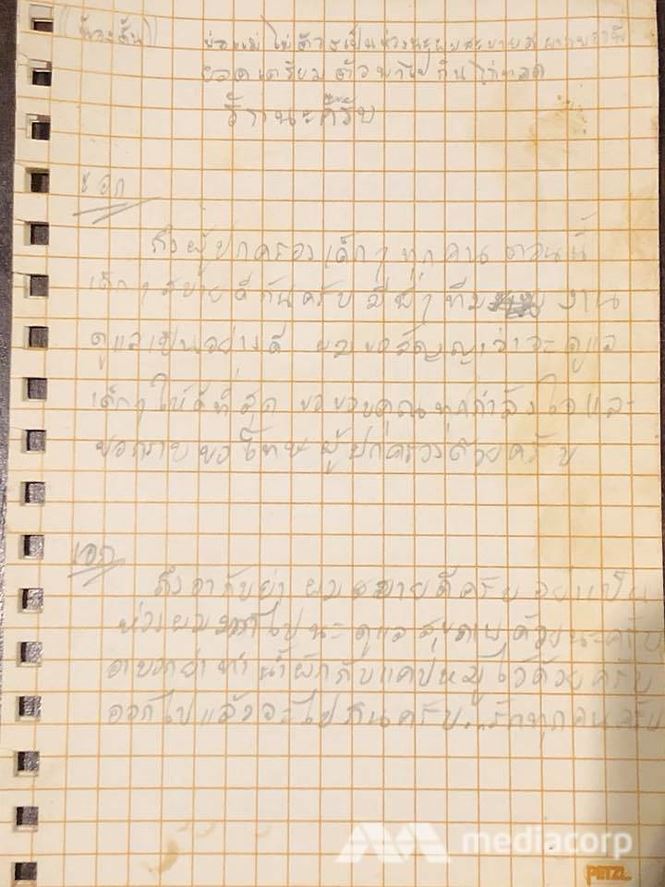 พ่อแม่ไม่ต้องเป็นห่วงนะผมสบายดี
เตรียมตัวพาไปกินไก่ทอด
ด้วยนะครับ
ถึงผู้ปกครองเด็กๆ ทุกคน ตอนนี้
เด็กๆ สบายดีกันครับ มีพี่ๆ ทีม งาน
ดูแลเป็นอย่างดี ผมขอสัญญาว่าจะดูแล
เด็กๆ ให้ดีที่สุด ขอขอบคุณทุกกำลังใจและ
ขอกราบขอโทษผู้ปกครองด้วยครับ
เอก
ถึงอากับย่า ผมสบายดีครับ อย่าเป็น
ห่วงผม ไปนะ ดูแลสุขภาพด้วยนะครับ
อาบอกย่าทำน้ำผักกับแคปหมูไว้ด้วยครับ
ออกไปแล้วจะไปกินครับ...รักทุกคนครับ
mediacorp
PETZL